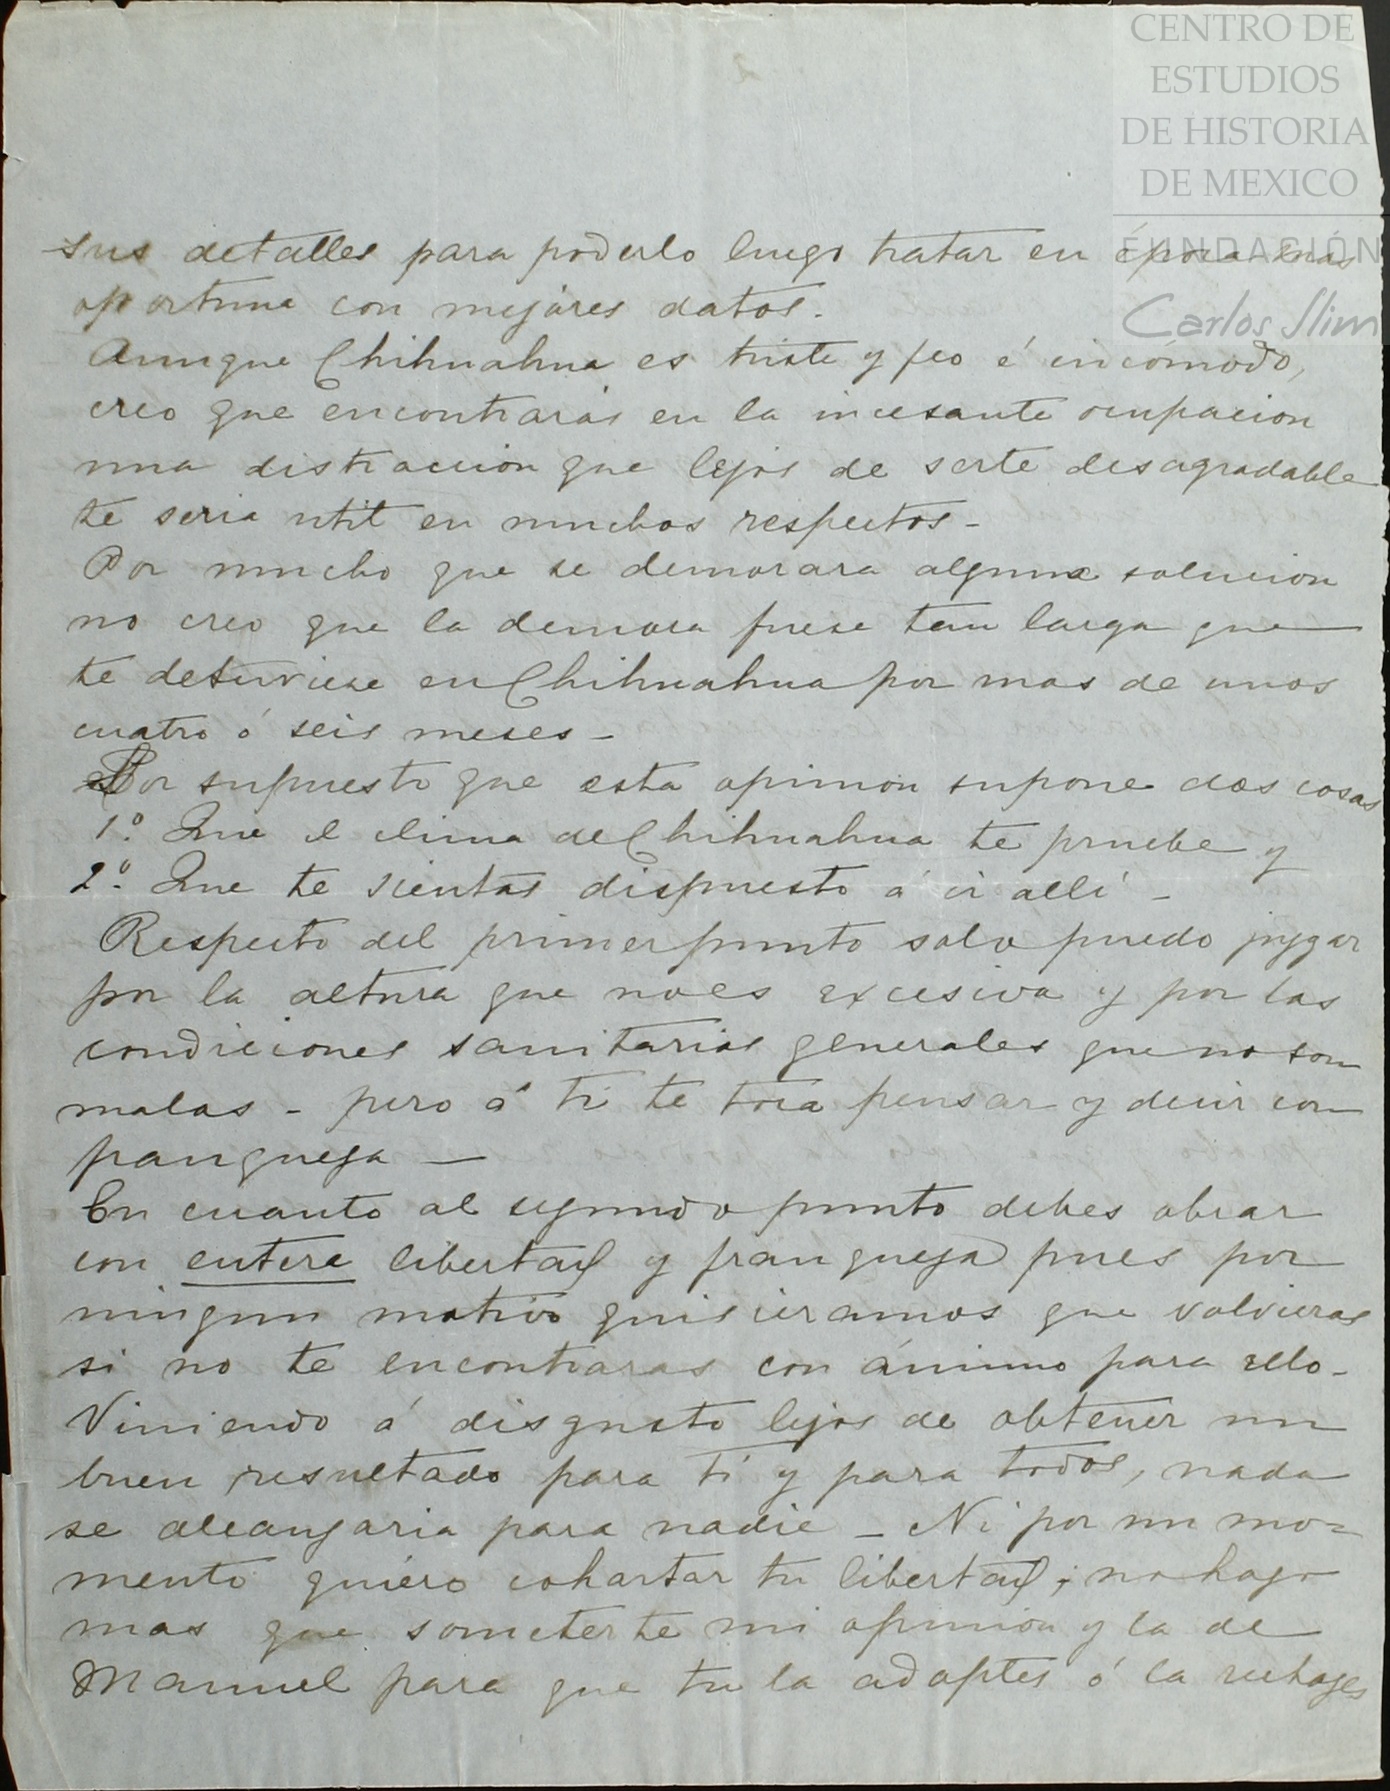 CENTRO DE
ESTUDIOS
DE HISTORIA
DE MEXICO
FUNDACIÓN
Carlos Slim
sus detalles para poderlo luego tratar en época mas
oportuna con mejores datos.
Aunque Chihuahua es triste y feo é incómodo,
creo que encontrarás en la incesante ocupacion
una distraccion que lejos de serte desagradable
te seria util en muchos respectos -
Por mucho que se demorara alguna solucion
no creo que la demora fuese tan larga que
te detuviese en Chihuahua por mas de unos
cuatro ó seis meses -
Por supuesto que esta opinion supone dos cosas
1º. Que el clima de Chihuahua te pruebe y
2º. Que te sientas dispuesto á ir allí -
Respecto del primer punto solo puedo juzgar
por la altura que no es excesiva y por las
condiciones sanitarias generales que no son
malas - pero á ti te toca pensar y decir con
franqueza -
En cuanto al segundo punto debes obrar
con entera libertad y franqueza pues por
ningun motivo quisieramos que volvieras
si no te encontraras con ánimo para ello -
Viniendo á disgusto lejos de obtener un
buen resultado para tí y para todos, nada
se alcanzaria para nadie - Ni por un mo=
mento quiero cohartar tu libertad; no hago
mas que someterte mi opinion y la de
Manuel para que tu la adoptes ó la rechazes